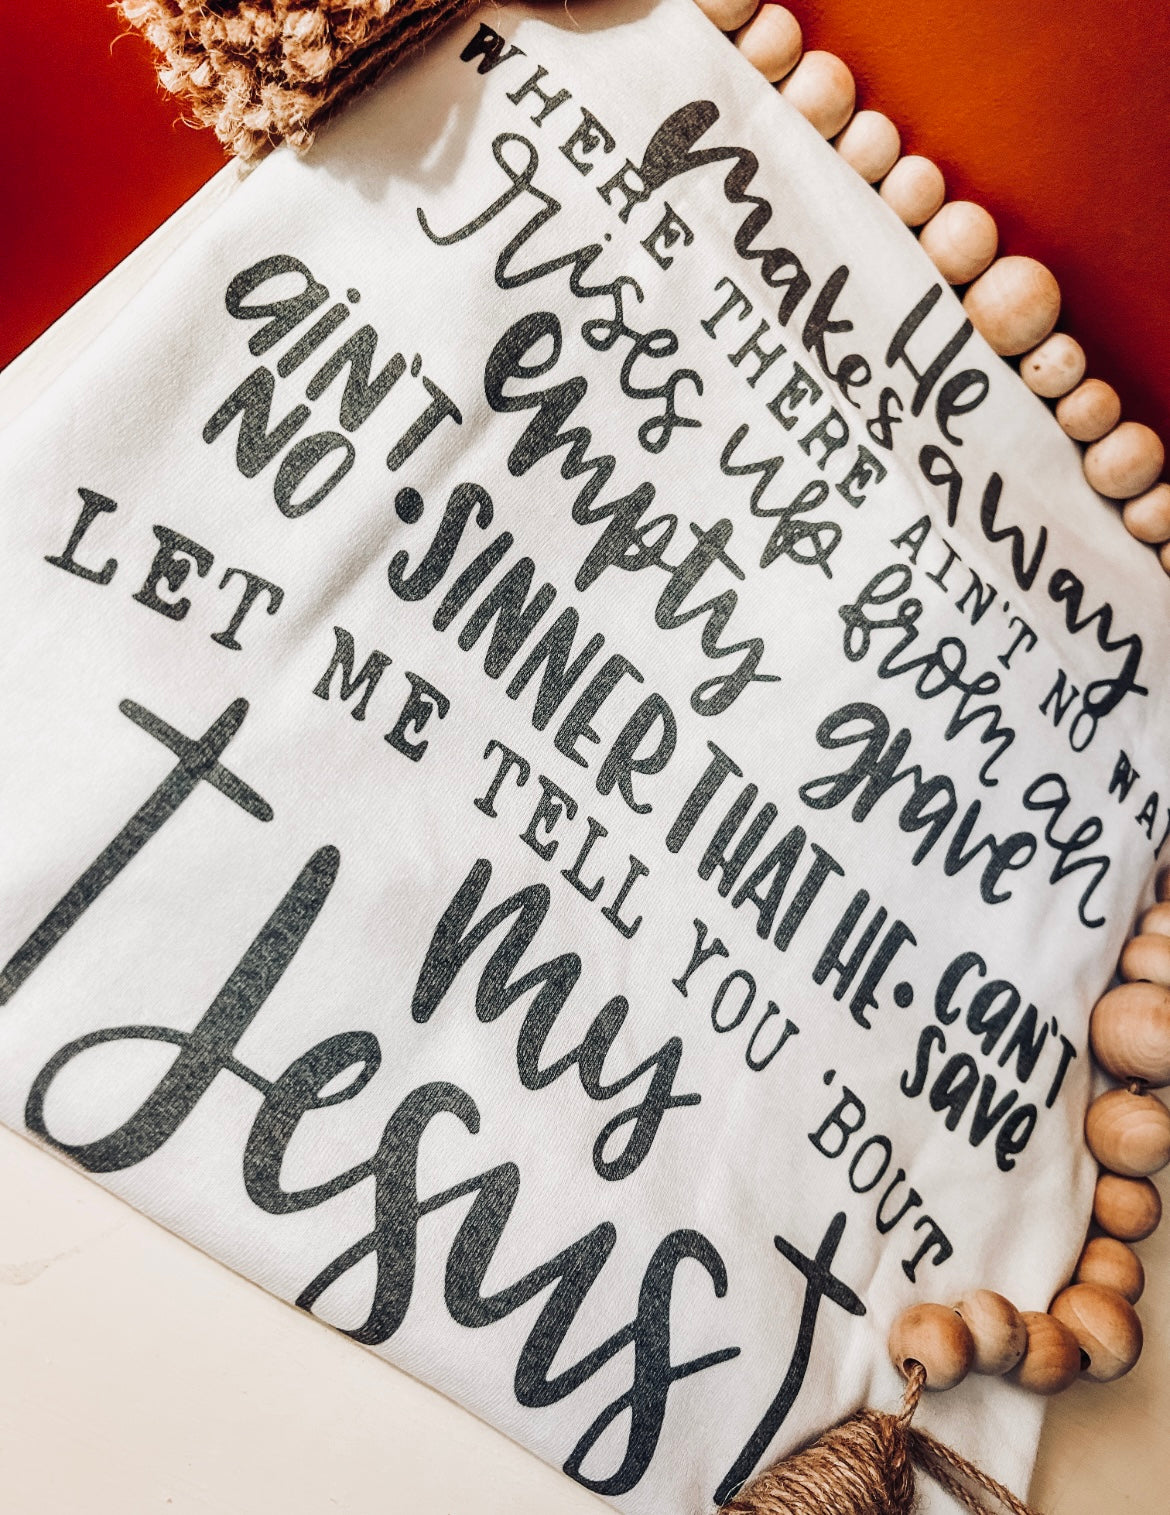 He
makes a way
WHERE THERE AIN'T NO WA
rises up from an
empty grave
AIN'T NO • SINNER THAT HE • CAN'T SAVE
LET ME TELL YOU 'BOUT
my
Jesus